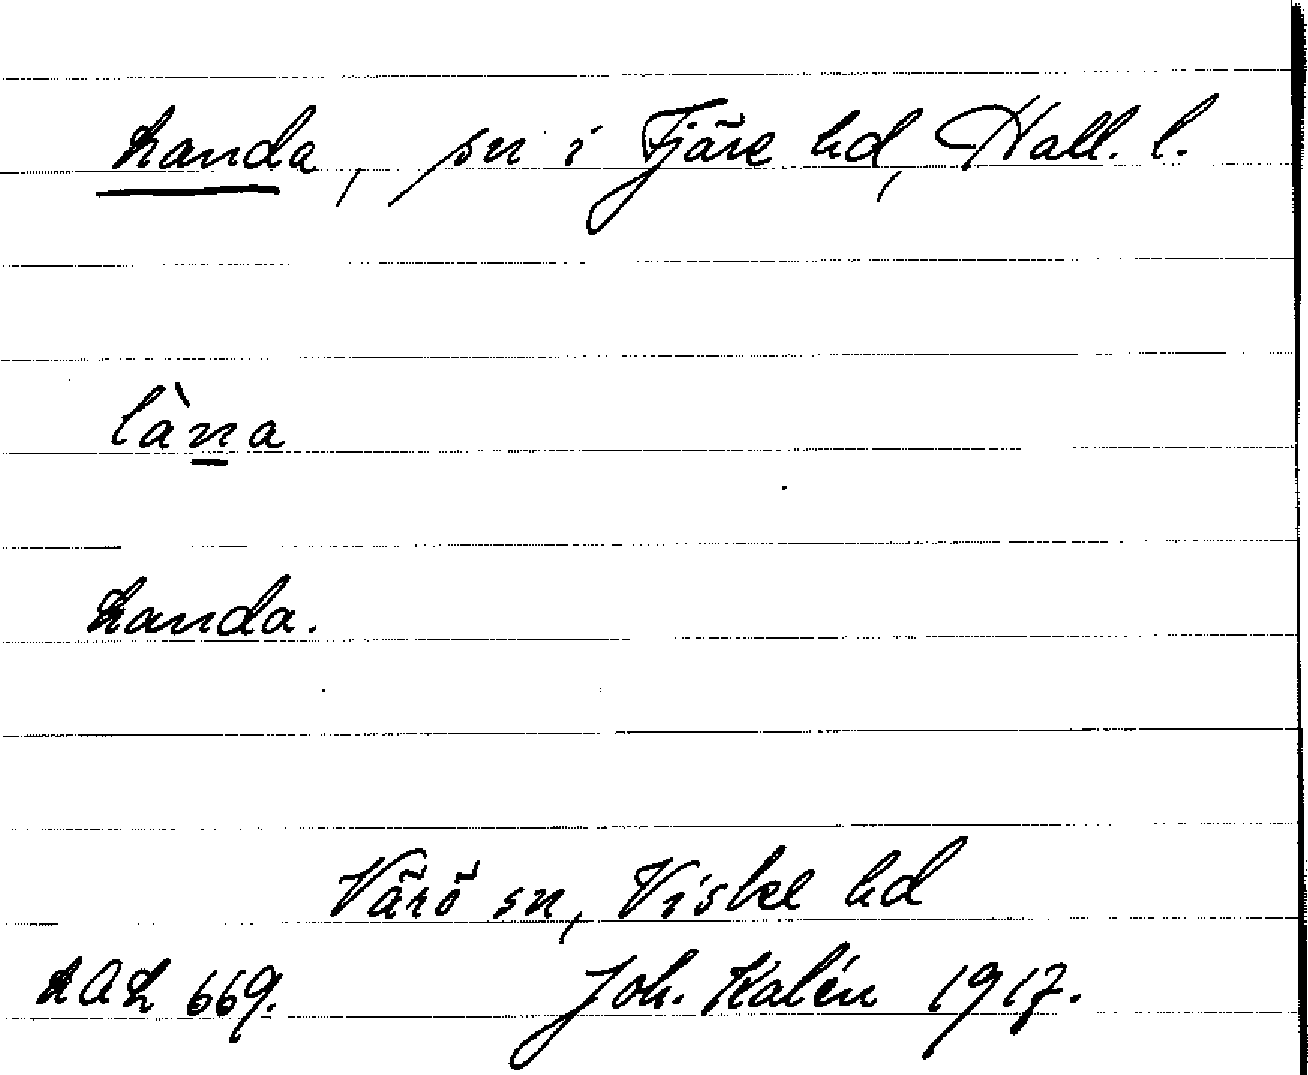 Landa, sn i Fjäre hd, Hall. l.
làna
Landa.
Värö sn, Viske hd
LAL 669. Joh. Kalén 1917.